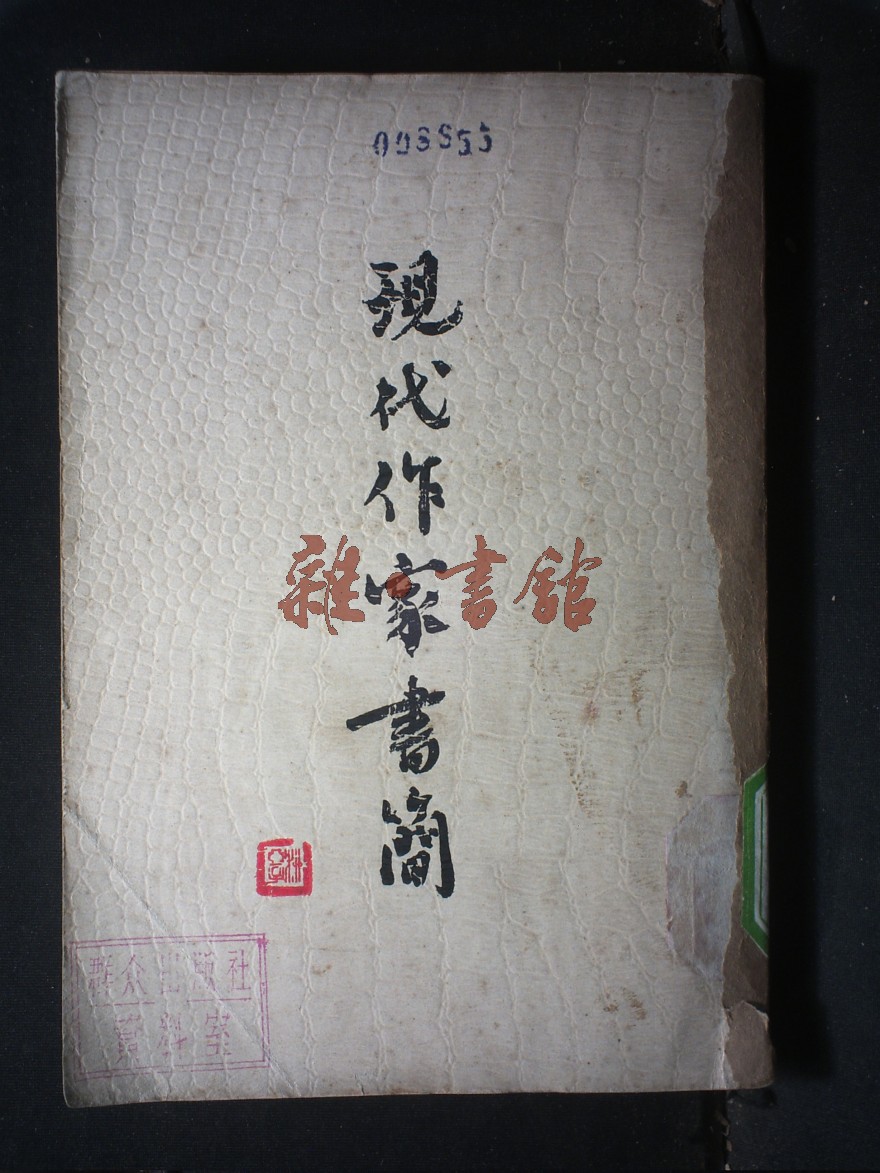 現代作家書簡
雜·書館
群众出版社
資料室